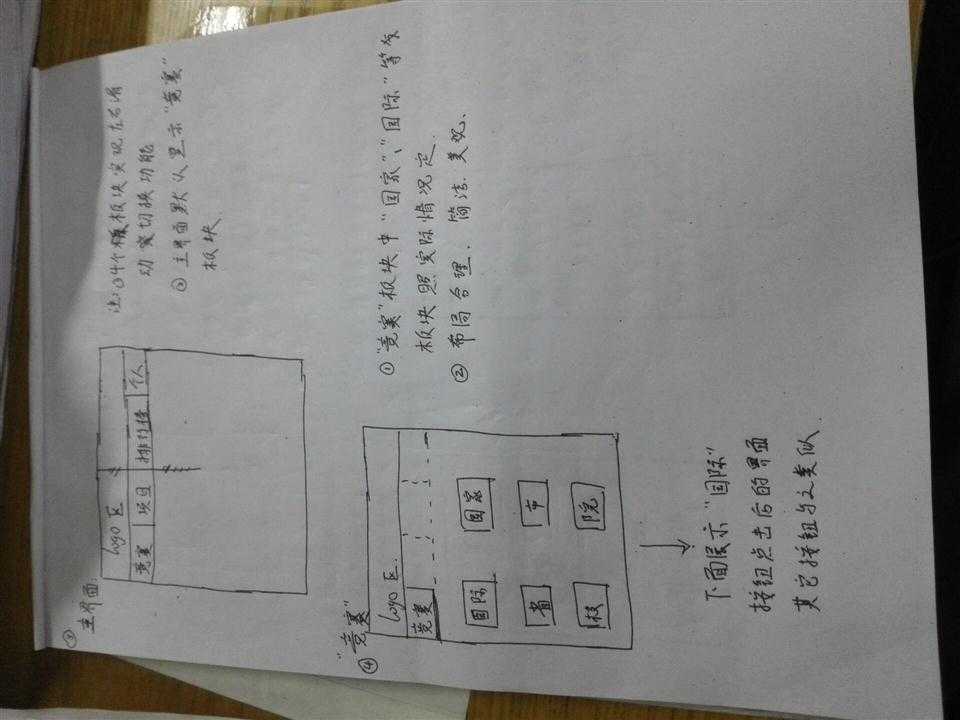 ③ 主界面
logo区
竞赛 项目 排行榜 个人
注:①4个板块实现左右滑
动切换功能
②主界面默认显示"竞赛"
板块
④ "竞赛"
logo区
竞赛
国际 国家
省 市
校 院
①"竞赛"板块中"国家"、"国际"等各
板块照实际情况定
②布局合理、简洁、美观、
下面展示"国际"
按钮点击后的界面
其它按钮与之类似